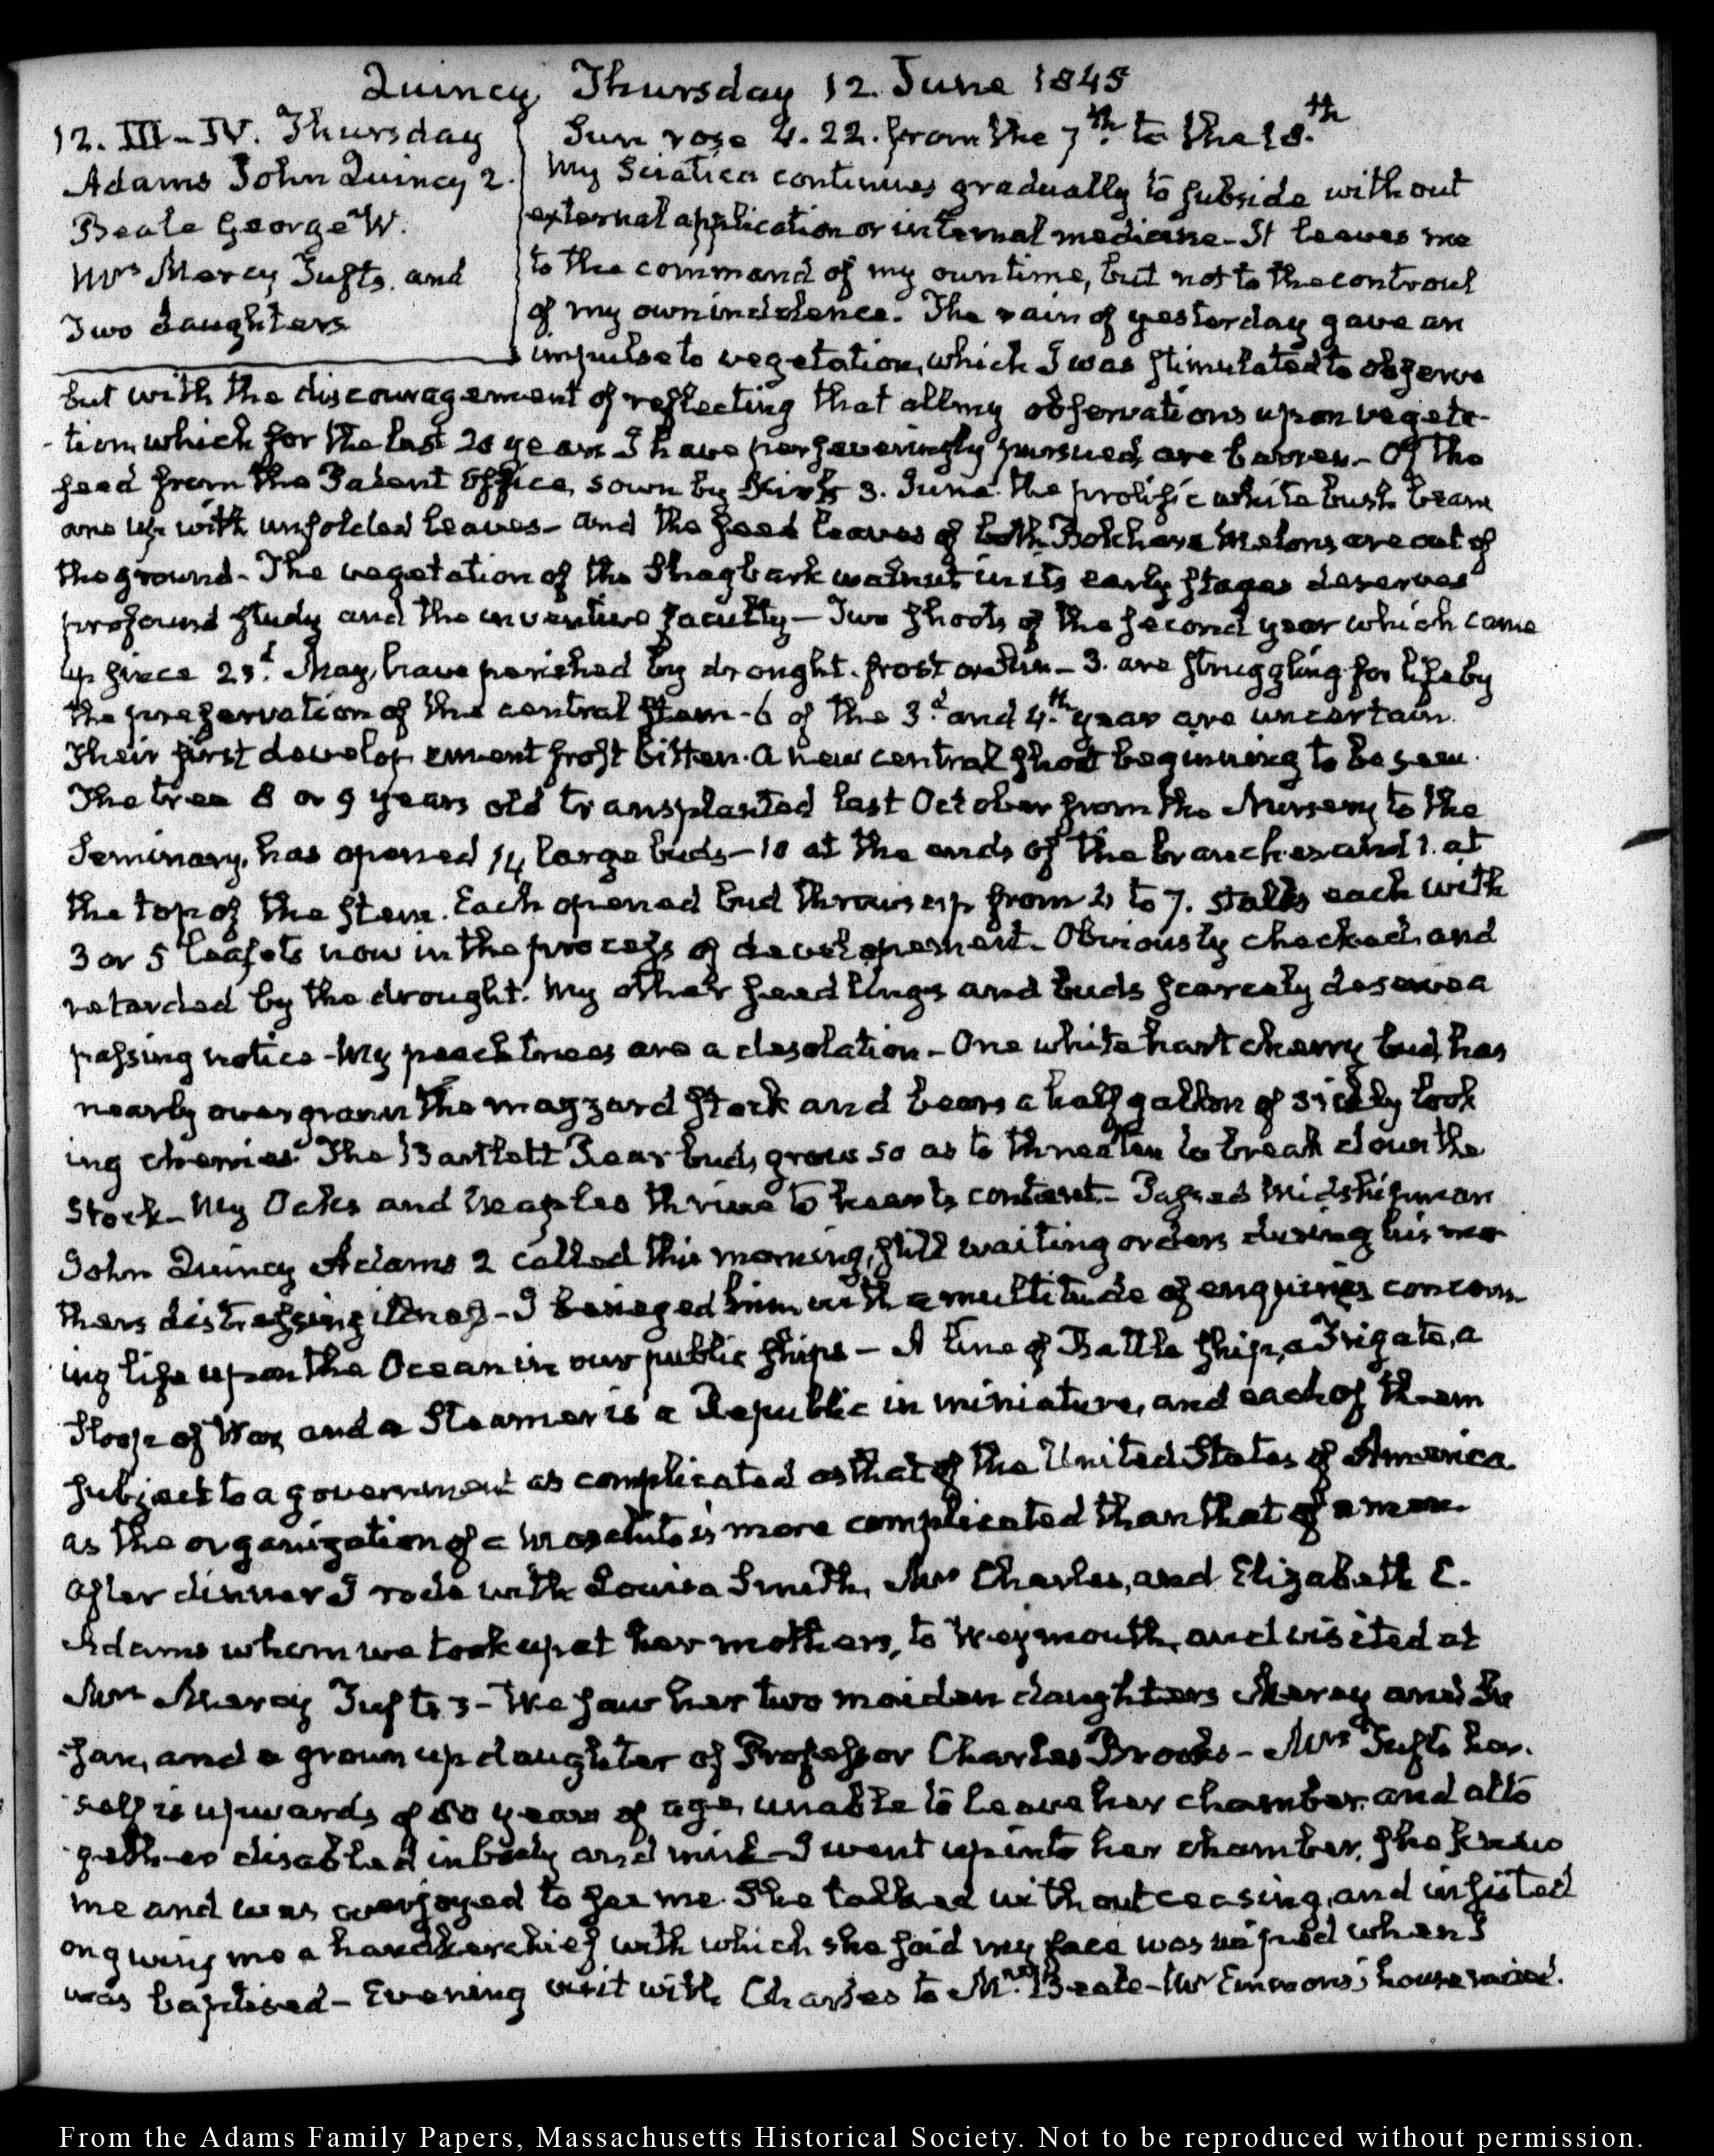 Quincy Thursday 12. June 1845
12. III–IV. Thursday
Adams John Quincy 2.
Beale George W.
Mrs Mercy Tufts. and
Two daughters
Sun rose 4. 22. from the 7th. to the 18.th
My Sciatica continues gradually to subside without
external application or internal medicine – It leaves me
to the command of my own time, but not to the controul
of my own indolence. The rain of yesterday gave an
impulse to vegetation, which I was stimulated to observe
but with the discouragement of reflecting that all my observations upon vegeta-
-tion, which for the last 20 years I have perseveringly pursued, are barren – Of the
seed from the Patent Office, sown by Kirk 3. June. the prolific white bush bean
are up with unfolded leaves – and the seed leaves of both Melons are out of
the ground – The vegetation of the Shagbark walnut in its early stages deserves
profound study and the inventive faculty – Two shoots of the second year which came
up since 23.d May, have perished by drought. frost or Sun – 3. are struggling for life by
the preservation of the central stem – 6 of the 3.d and 4.th year are uncertain.
Their first developement frost bitten. A new central shoot beginning to be seen.
The tree 8 or 9 years old transplanted last October from the Nursery to the
Seminary, has opened 14 large buds – 10 at the ends of the branches and 1. at
the top of the stem. Each opened bud throws up from 2 to 7. stalks each with
3 or 5 leafets now in the process of developement – Obviously checked, and
retarded by the drought. My other seedlings and buds scarcely deserve a
passing notice – My peach trees are a desolation – One white hart cherry bud, has
nearly overgrown the mazzard stock and bears a half gallon of sickly look
ing cherries. The Bartlett Pear buds grow so as to threaten to break down the
stock – My Oaks and maples thrive to hearts content – Passed Midshipman
John Quincy Adams 2 called this morning, still waiting orders during his mo
thers distressing illness – I besieged him with a multitude of enquiries concern-
ing life upon the Ocean in our public ships – A Line of Battle ship, a Frigate, a
Sloop of War, and a Steamer is a Republic in miniature, and each of them
subject to a government as complicated as that of the United States of America.
as the organization of a is more complicated than that of a man.
After dinner I rode with Louisa Smith, Mrs Charles, and Elizabeth C.
Adams whom we took up at her mothers, to Weymouth, and visited at
Mrs Mercy Tufts's – We saw her two maiden daughters Mercy and Su
san, and a grown up daughter of Professor Charles Brooks – Mrs Tufts her.
self is upwards of 80 years of age, unable to leave her chamber. and alto
gether disabled in body and mind – I went up into her chamber. She knew
me and was overjoyed to see me. She talked without ceasing, and insisted
on giving me a handkerchief with which she said my face was wiped when I
was baptised – Evening visit with Charles to Mr. Beale – Mr Emmons's house raised.
From the Adams Family Papers, Massachusetts Historical Society. Not to be reproduced without permission.